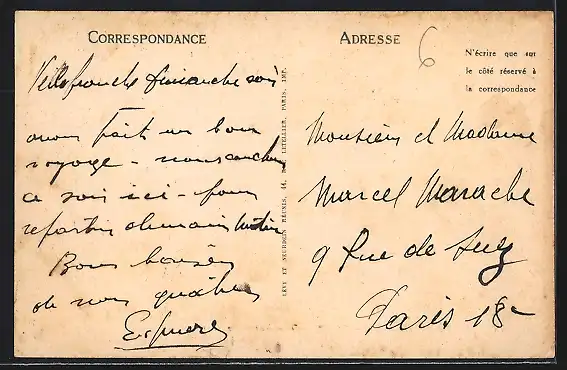 CORRESPONDANCE
Villefranche dimanche soir
avons fait un bon
voyage - nous couchons
ce soir ici - pour
repartir demain matin
Bons baisers
de nous quatre
ADRESSE
6
N'écrire que sur
le côté réservé à
la correspondance
Monsieur et Madame
Marcel Marache
9 Rue de Suez
Paris 18e
LÉVY ET NEURDEIN RÉUNIS, 44, RUE LETELLIER, PARIS. IMP.